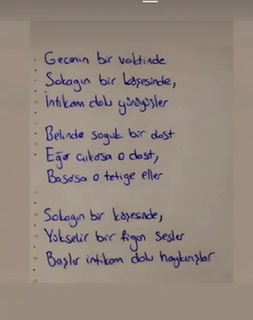 Gecenin bir vaktinde
Sokağın bir köşesinde,
İntikam dolu yürüyüşler
Belinde soğuk bir dost
Eğer çıkarsa o dost,
Basarsa o tetiğe eller
Sokağın bir köşesinde,
Yükselir bir figan sesler
Başlar intikam dolu haykırışlar